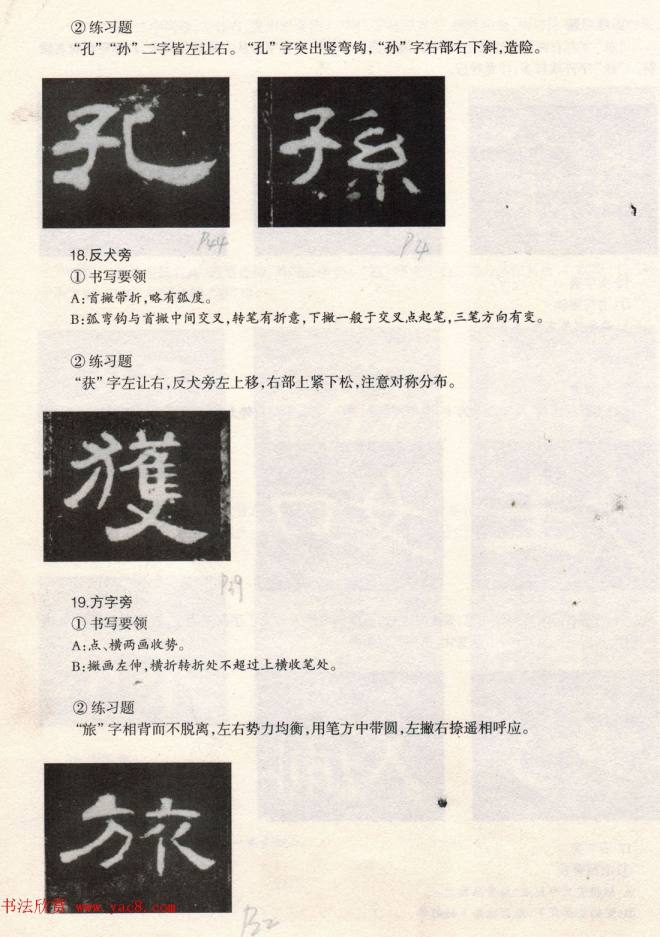 ② 练习题
“孔”“孙”二字皆左让右。“孔”字突出竖弯钩，“孙”字右部右下斜，造险。
孔 孫
P44 P4
18.反犬旁
① 书写要领
A：首撇带折，略有弧度。
B：弧弯钩与首撇中间交叉，转笔有折意，下撇一般于交叉点起笔，三笔方向有变。
② 练习题
“获”字左让右，反犬旁左上移，右部上紧下松，注意对称分布。
獲
P39
19.方字旁
① 书写要领
A：点、横两画收势。
B：撇画左伸，横折转折处不超过上横收笔处。
② 练习题
“旅”字相背而不脱离，左右势力均衡，用笔方中带圆，左撇右捺遥相呼应。
旅
书法欣赏 www.yac8.com